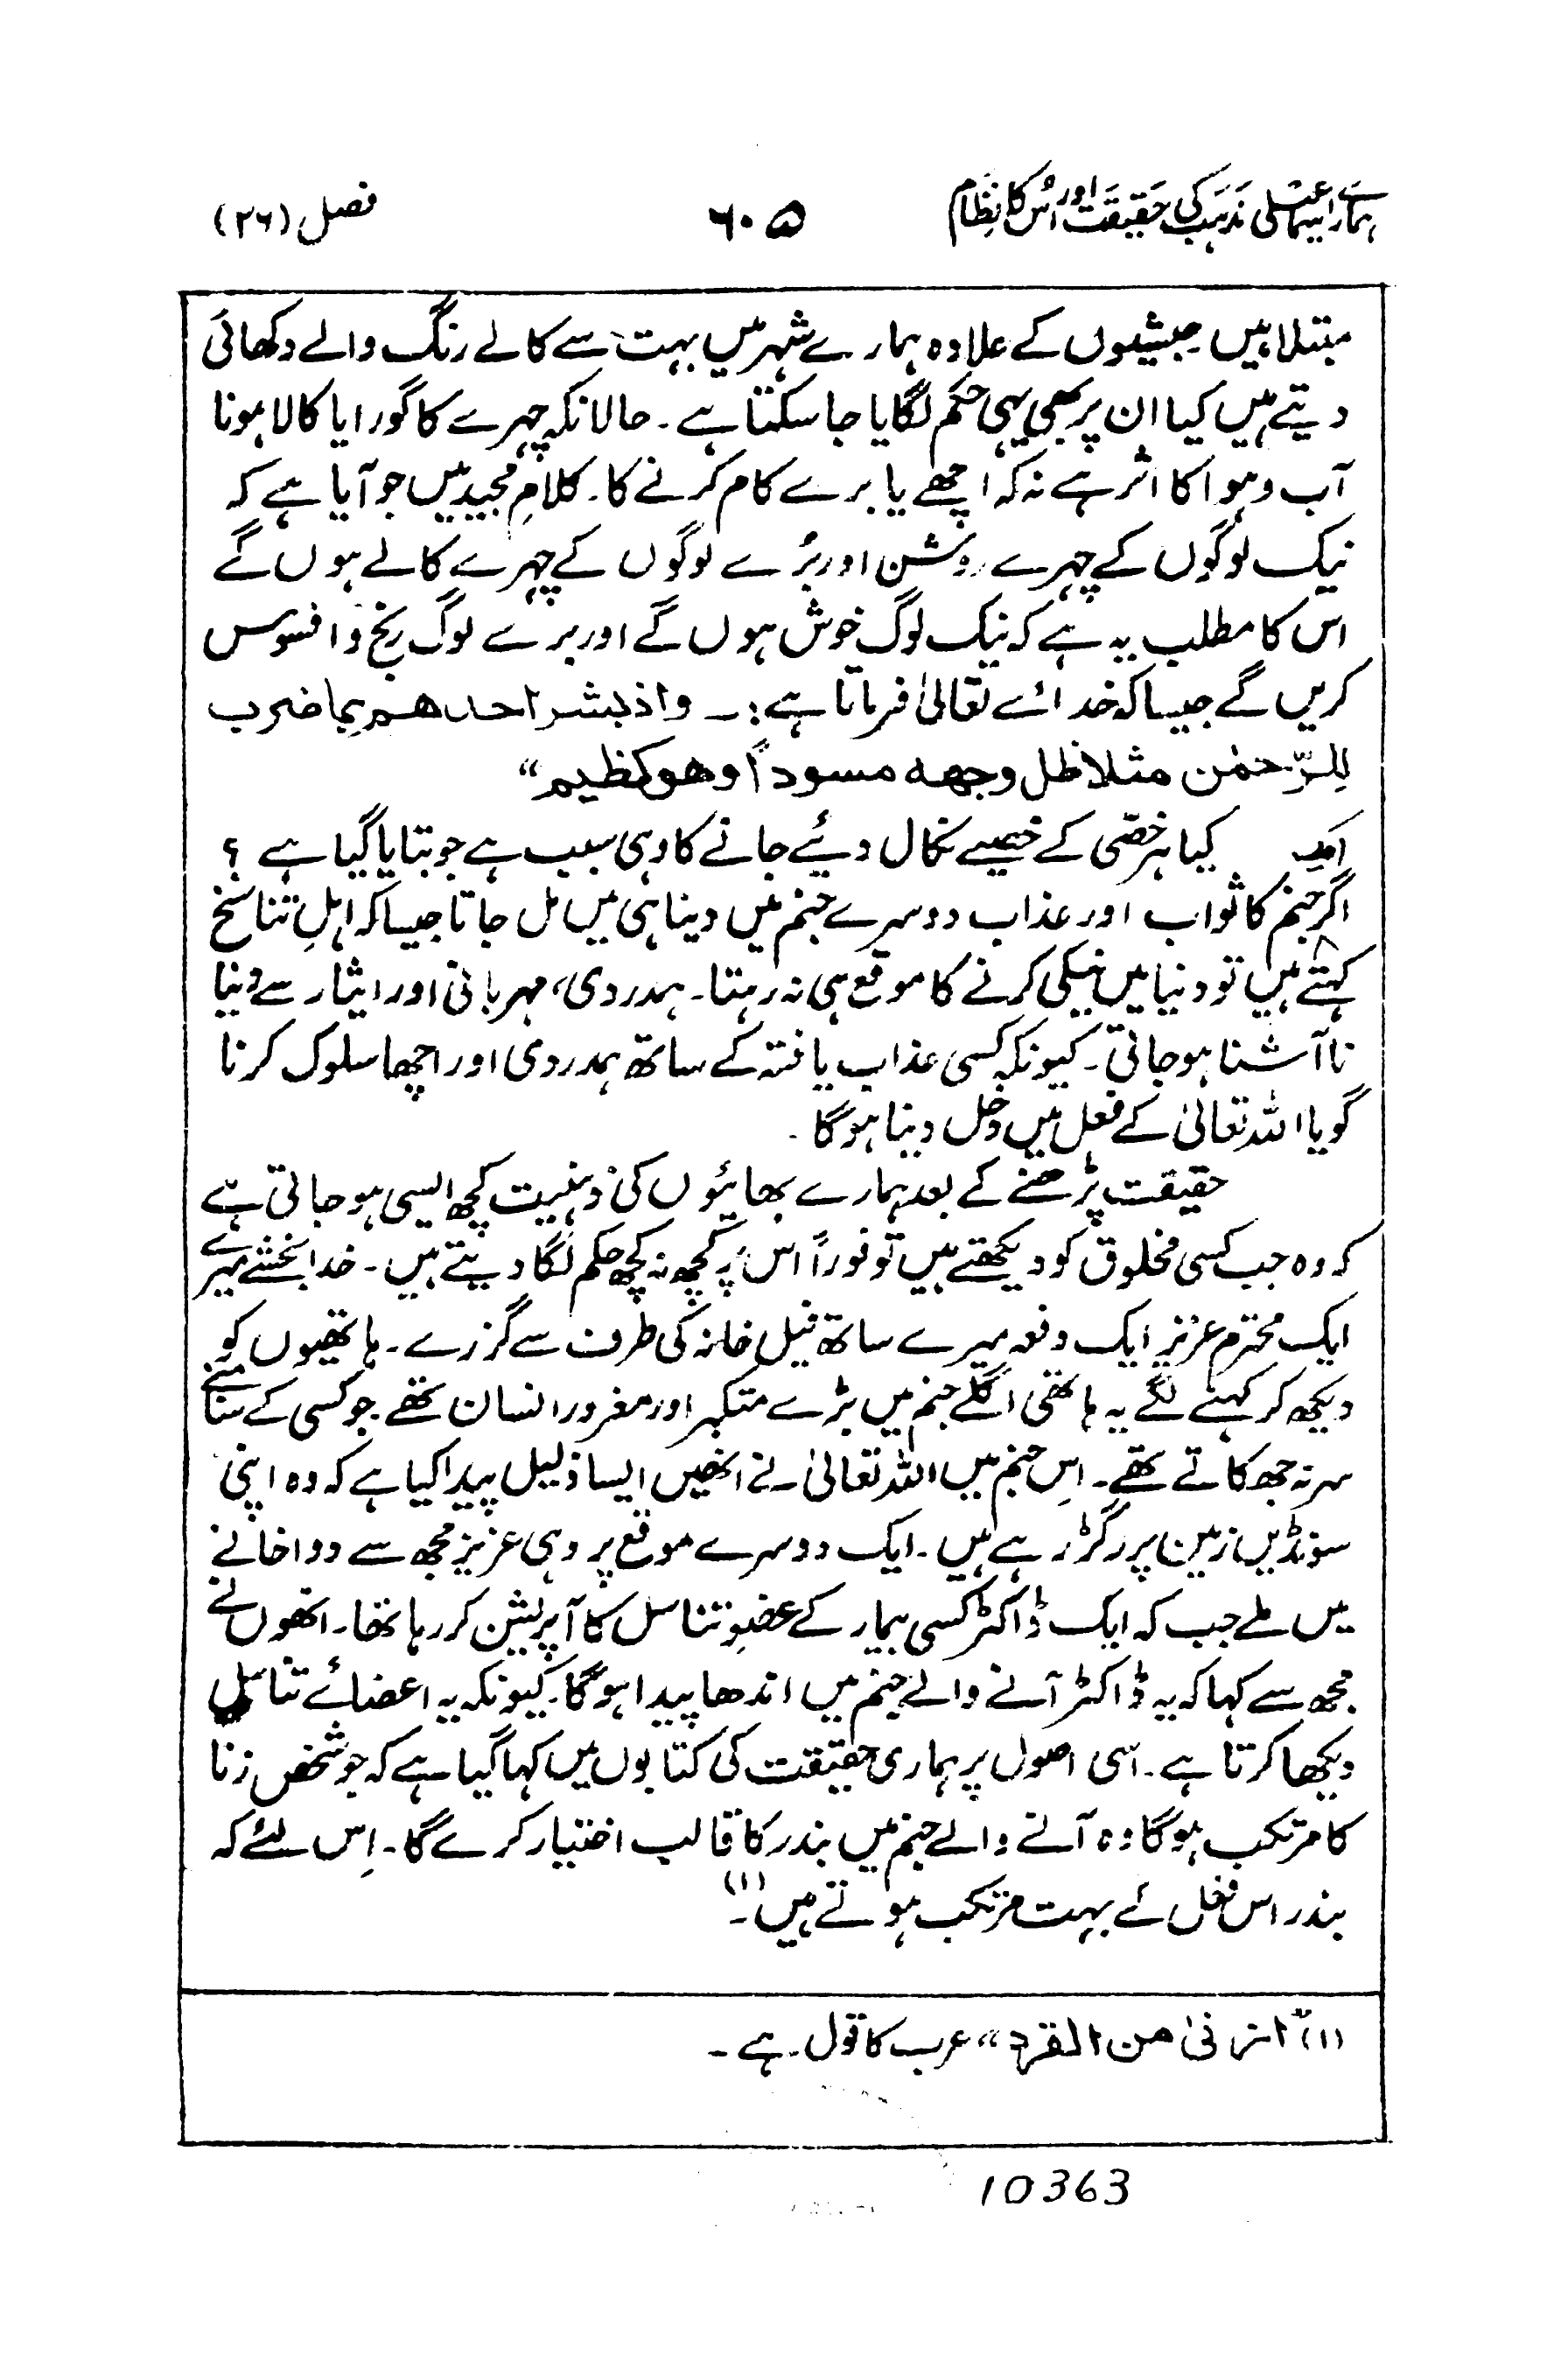 ہمارے اسماعیلی مذہب کی حقیقت اور اُس کا نظام
۶۰۵
فصل (۲۶)
مبتلا ہیں حبشیوں کے علاوہ ہمارے شہر میں بہت سے کالے رنگ والے دکھائی
دیتے ہیں کیا ان پر بھی یہی حکم لگایا جا سکتا ہے ۔ حالانکہ چہرے کا گورا یا کالا ہونا
آب و ہوا کا اثر ہے نہ کہ اچھے یا برے کام کرنے کا ۔ کلامِ مجید میں جو آیا ہے کہ
نیک لوگوں کے چہرے روشن اور بُرے لوگوں کے چہرے کالے ہوں گے
اس کا مطلب یہ ہے کہ نیک لوگ خوش ہوں گے اور برے لوگ رنج و افسوس
کریں گے جیسا کہ خدائے تعالیٰ فرماتا ہے :۔ واذ بشر احدھم بما ضرب
للرّحمٰن مثلا ظل وجھہ مسوداً وھو کظیم “
کیا ہر خصّی کے خصیے نکال دئیے جانے کا وہی سبب ہے جو بتایا گیا ہے ؟
اگر جنم کا ثواب اور عذاب دوسرے جنم میں دینا ہی میں مل جاتا جیسا کہ اہلِ تناسخ
کہتے ہیں تو دنیا میں نیکی کرنے کا موقع ہی نہ رہتا ۔ ہمدردی، مہربانی اور ایثار سے دنیا
ناآشنا ہو جاتی ۔ کیونکہ کسی عذاب یافتہ کے ساتھ ہمدردی اور اچھا سلوک کرنا
گویا اللہ تعالیٰ کے فعل میں دخل دینا ہوگا ۔
حقیقت پڑھنے کے بعد ہمارے بھائیوں کی ذہنیت کچھ ایسی ہو جاتی ہے
کہ وہ جب کسی مخلوق کو دیکھتے ہیں تو فوراً اس پر کچھ نہ کچھ حکم لگا دیتے ہیں ۔ خدا بخشے میرے
ایک محترم عزیز ایک دفعہ میرے ساتھ فیل خانہ کی طرف سے گزرے ۔ ہاتھیوں کو
دیکھ کر کہنے لگے یہ ہاتھی اگلے جنم میں بڑے متکبر اور مغرور انسان تھے ۔ جو کسی کے سامنے
سر نہ جھکاتے تھے ۔ اِس جنم میں اللہ تعالیٰ نے انھیں ایسا ذلیل پیدا کیا ہے کہ وہ اپنی
سونڈیں زمین پر رگڑ رہے ہیں ۔ ایک دوسرے موقع پر وہی عزیز مجھ سے دواخانے
میں ملے جب کہ ایک ڈاکٹر کسی بیمار کے عضوِ تناسل کا آپریشن کر رہا تھا ۔ انھوں نے
مجھ سے کہا کہ یہ ڈاکٹر آنے والے جنم میں اندھا پیدا ہوگا ۔ کیونکہ یہ اعضائے تناسل
دیکھا کرتا ہے ۔ اسی اصول پر ہماری حقیقت کی کتابوں میں کہا گیا ہے کہ جو شخص زنا
کا مرتکب ہوگا وہ آنے والے جنم میں بندر کا قالب اختیار کرے گا ۔ اِس لئے کہ
بندر اس فعل کے بہت مرتکب ہوتے ہیں ۔(۱)
(۱) ” ازنیٰ من القرد “ عرب کا قول ہے ۔
10363